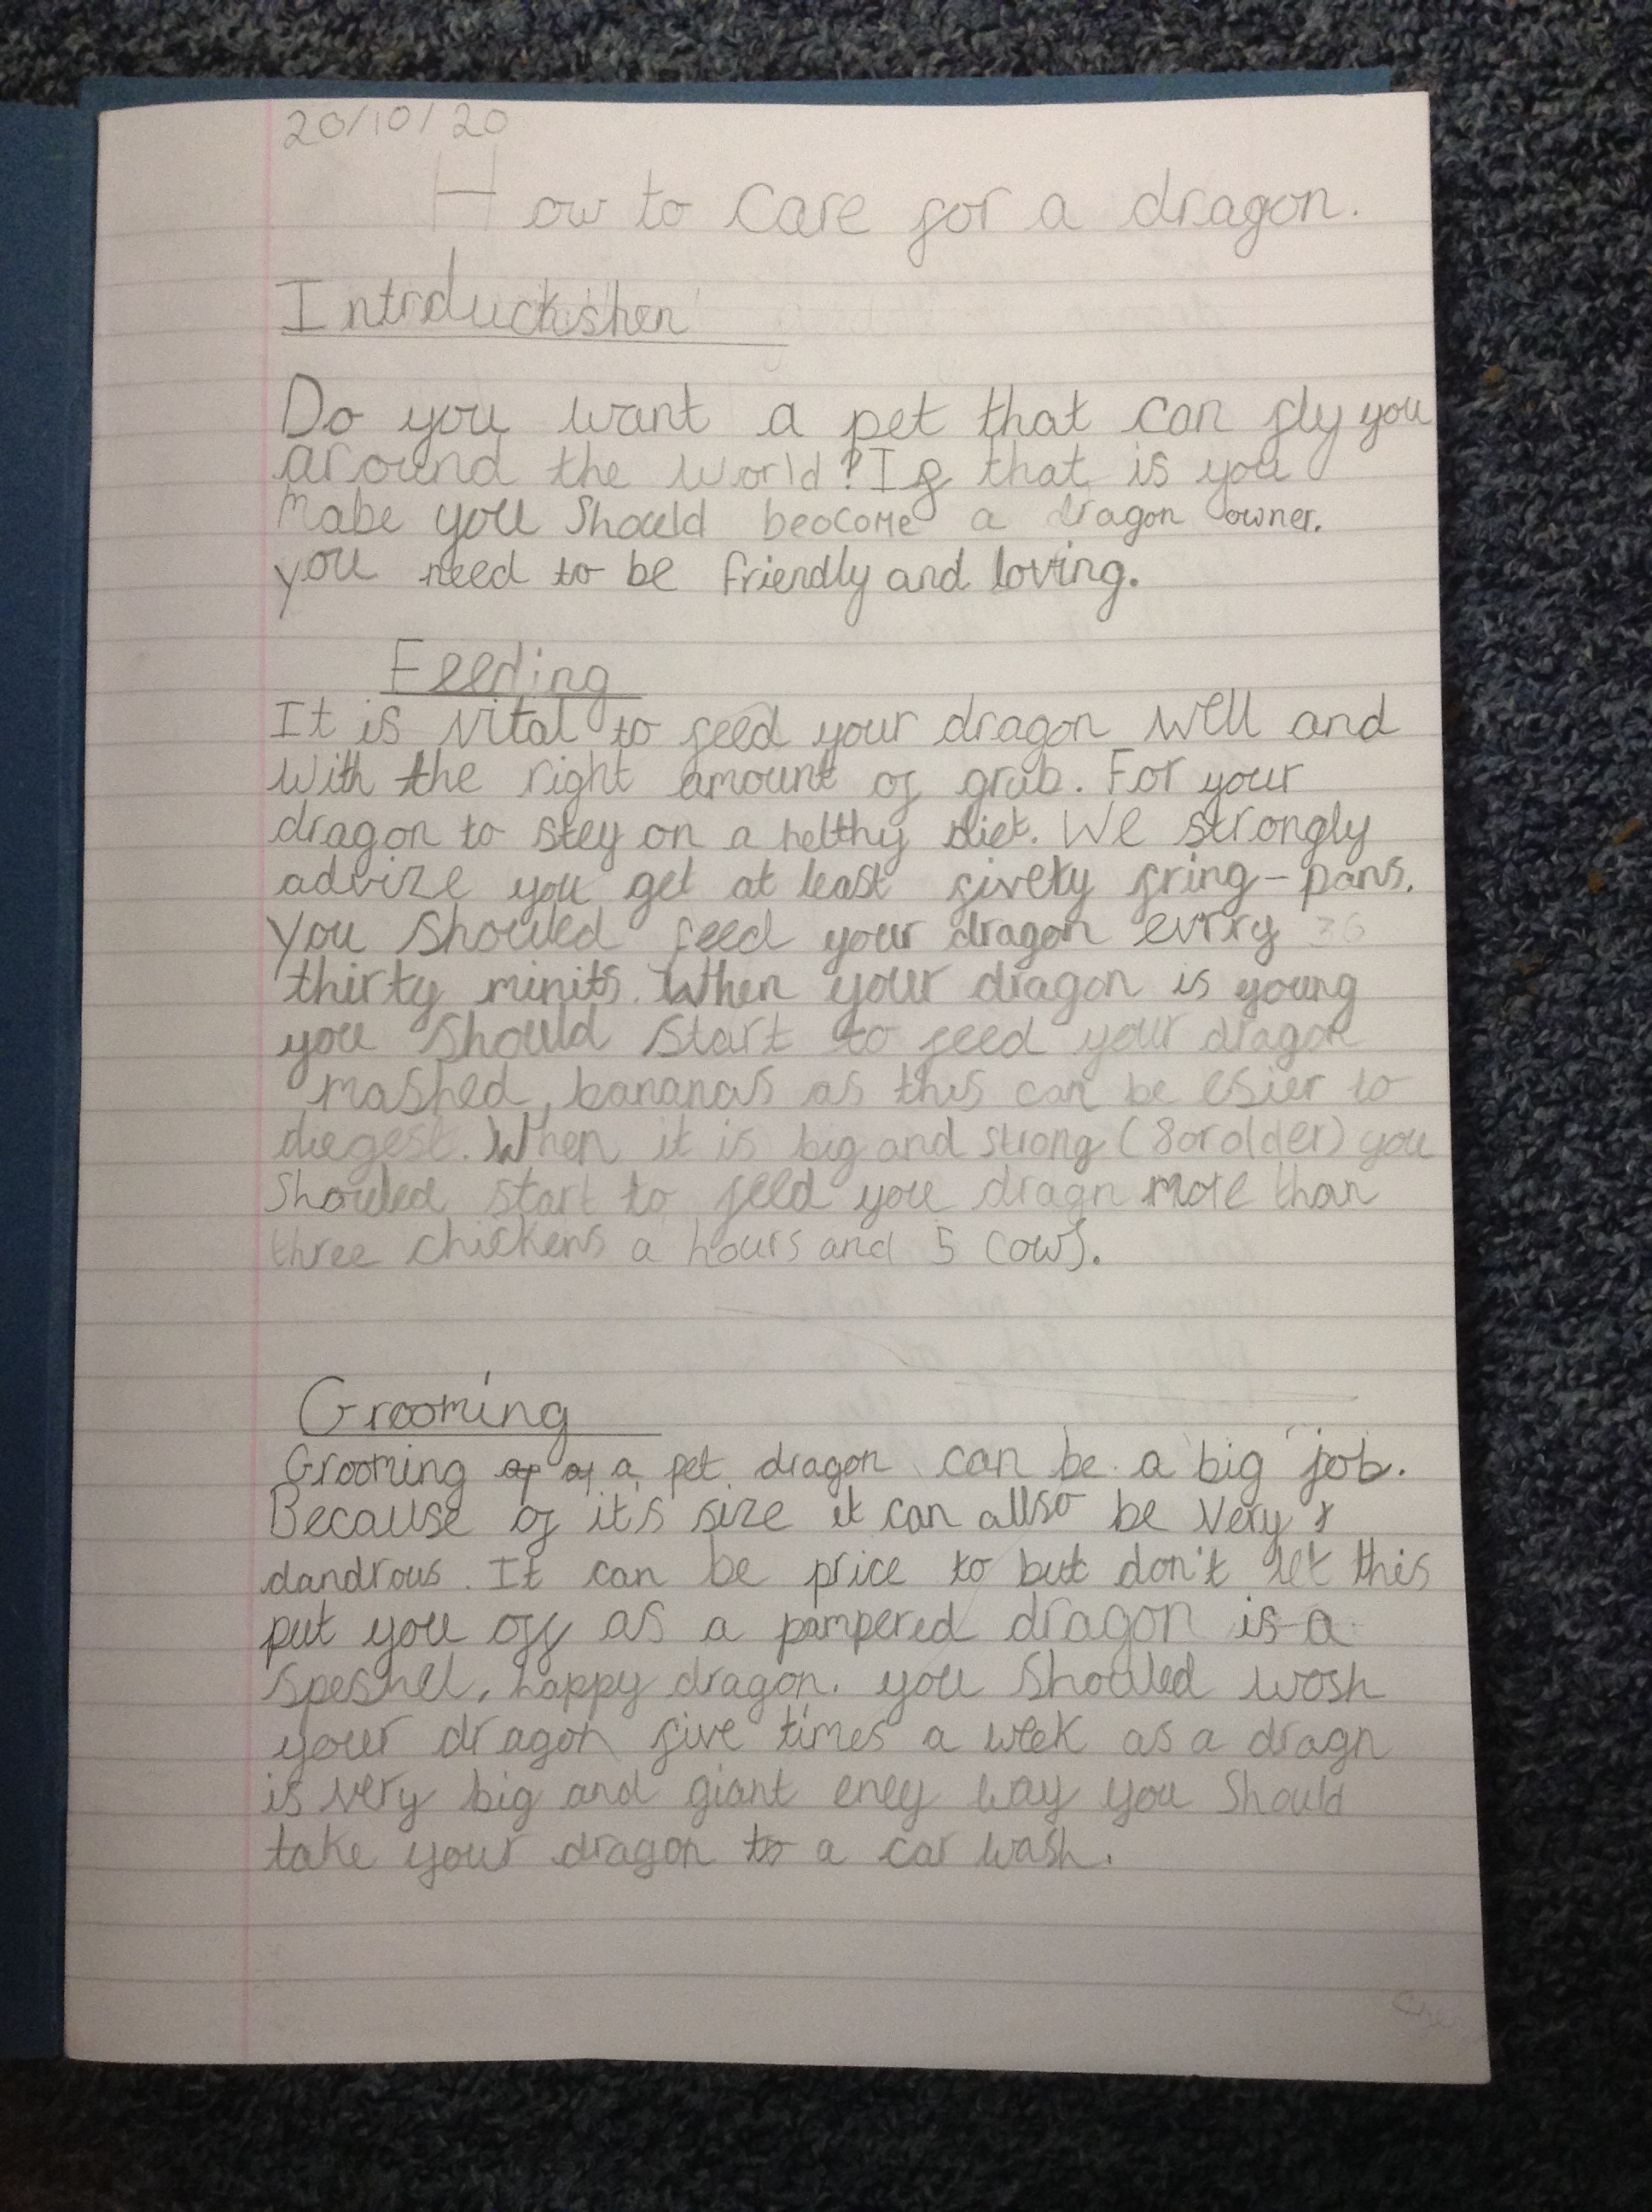 20/10/20
How to care for a dragon.
Introduckshen
Do you want a pet that can fly you
around the world? If that is you
Mabe you should beocome a dragon owner.
you need to be friendly and loving.
Feeding
It is vital to feed your dragon well and
with the right amount of grub. For your
dragon to stey on a helthy diet. We strongly
advize you get at least fivety fring-pans.
You shouled feed your dragon evrry 30
thirty minits. When your dragon is young
you should start to feed your dragon
mashed, bananas as this can be esier to
diegest. When it is big and strong (8 or older) you
shouled start to feed you dragn more than
three chickens a hours and 5 cows.
Grooming
Grooming of of a pet dragon can be a big job.
Because of it's size it can allso be very
dandrous. It can be price to but don't let this
put you off as a pampered dragon is a
speshel, happy dragon. you shouled wosh
your dragon five times a week as a dragn
is very big and giant eney way you should
take your dragon to a car wash.